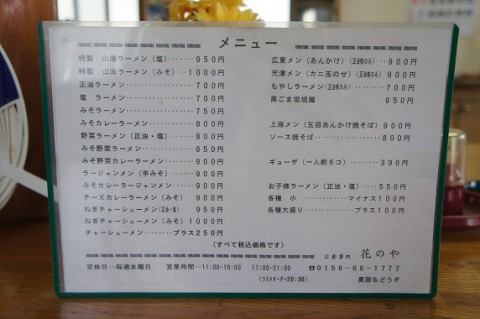 メニュー
特製 山海ラーメン（塩）‥‥‥950円
特製 山海ラーメン（みそ）‥1000円
正油ラーメン‥‥‥‥‥‥‥‥700円
塩 ラーメン‥‥‥‥‥‥‥‥700円
みそラーメン‥‥‥‥‥‥‥‥750円
みそカレーラーメン‥‥‥‥‥800円
野菜ラーメン（正油・塩）‥‥800円
みそ野菜ラーメン‥‥‥‥‥‥850円
みそ野菜カレーラーメン‥‥‥900円
ラージャンメン（辛みそ）‥‥900円
みそカレーラージャンメン‥‥
チーズカレーラーメン（みそ）900円
ねぎチャーシューメン（正油・塩）950円
ねぎチャーシューメン（みそ）1000円
チャーシューメン‥‥‥プラス250円
広東メン（あんかけ）（正油味のみ）‥900円
天津メン（カニ玉のせ）（正油味のみ）‥900円
もやしラーメン（正油味のみ）‥‥700円
黒ごま坦坦麺 950円
上海メン（五目あんかけ焼そば）900円
ソース焼そば‥‥‥‥‥‥‥‥800円
ギョーザ（一人前6コ）‥‥‥390円
お子様ラーメン（正油・塩）‥‥550円
各種 小‥‥‥‥‥‥マイナス100円
各種大盛り‥‥‥‥‥プラス100円
（すべて税込価格です）
お食事処 花のや
定休日―毎週水曜日 営業時間―11:00-15:00 17:00-21:00
（ラストオーダー20:30）
☎0156-66-1777
裏面もどうぞ